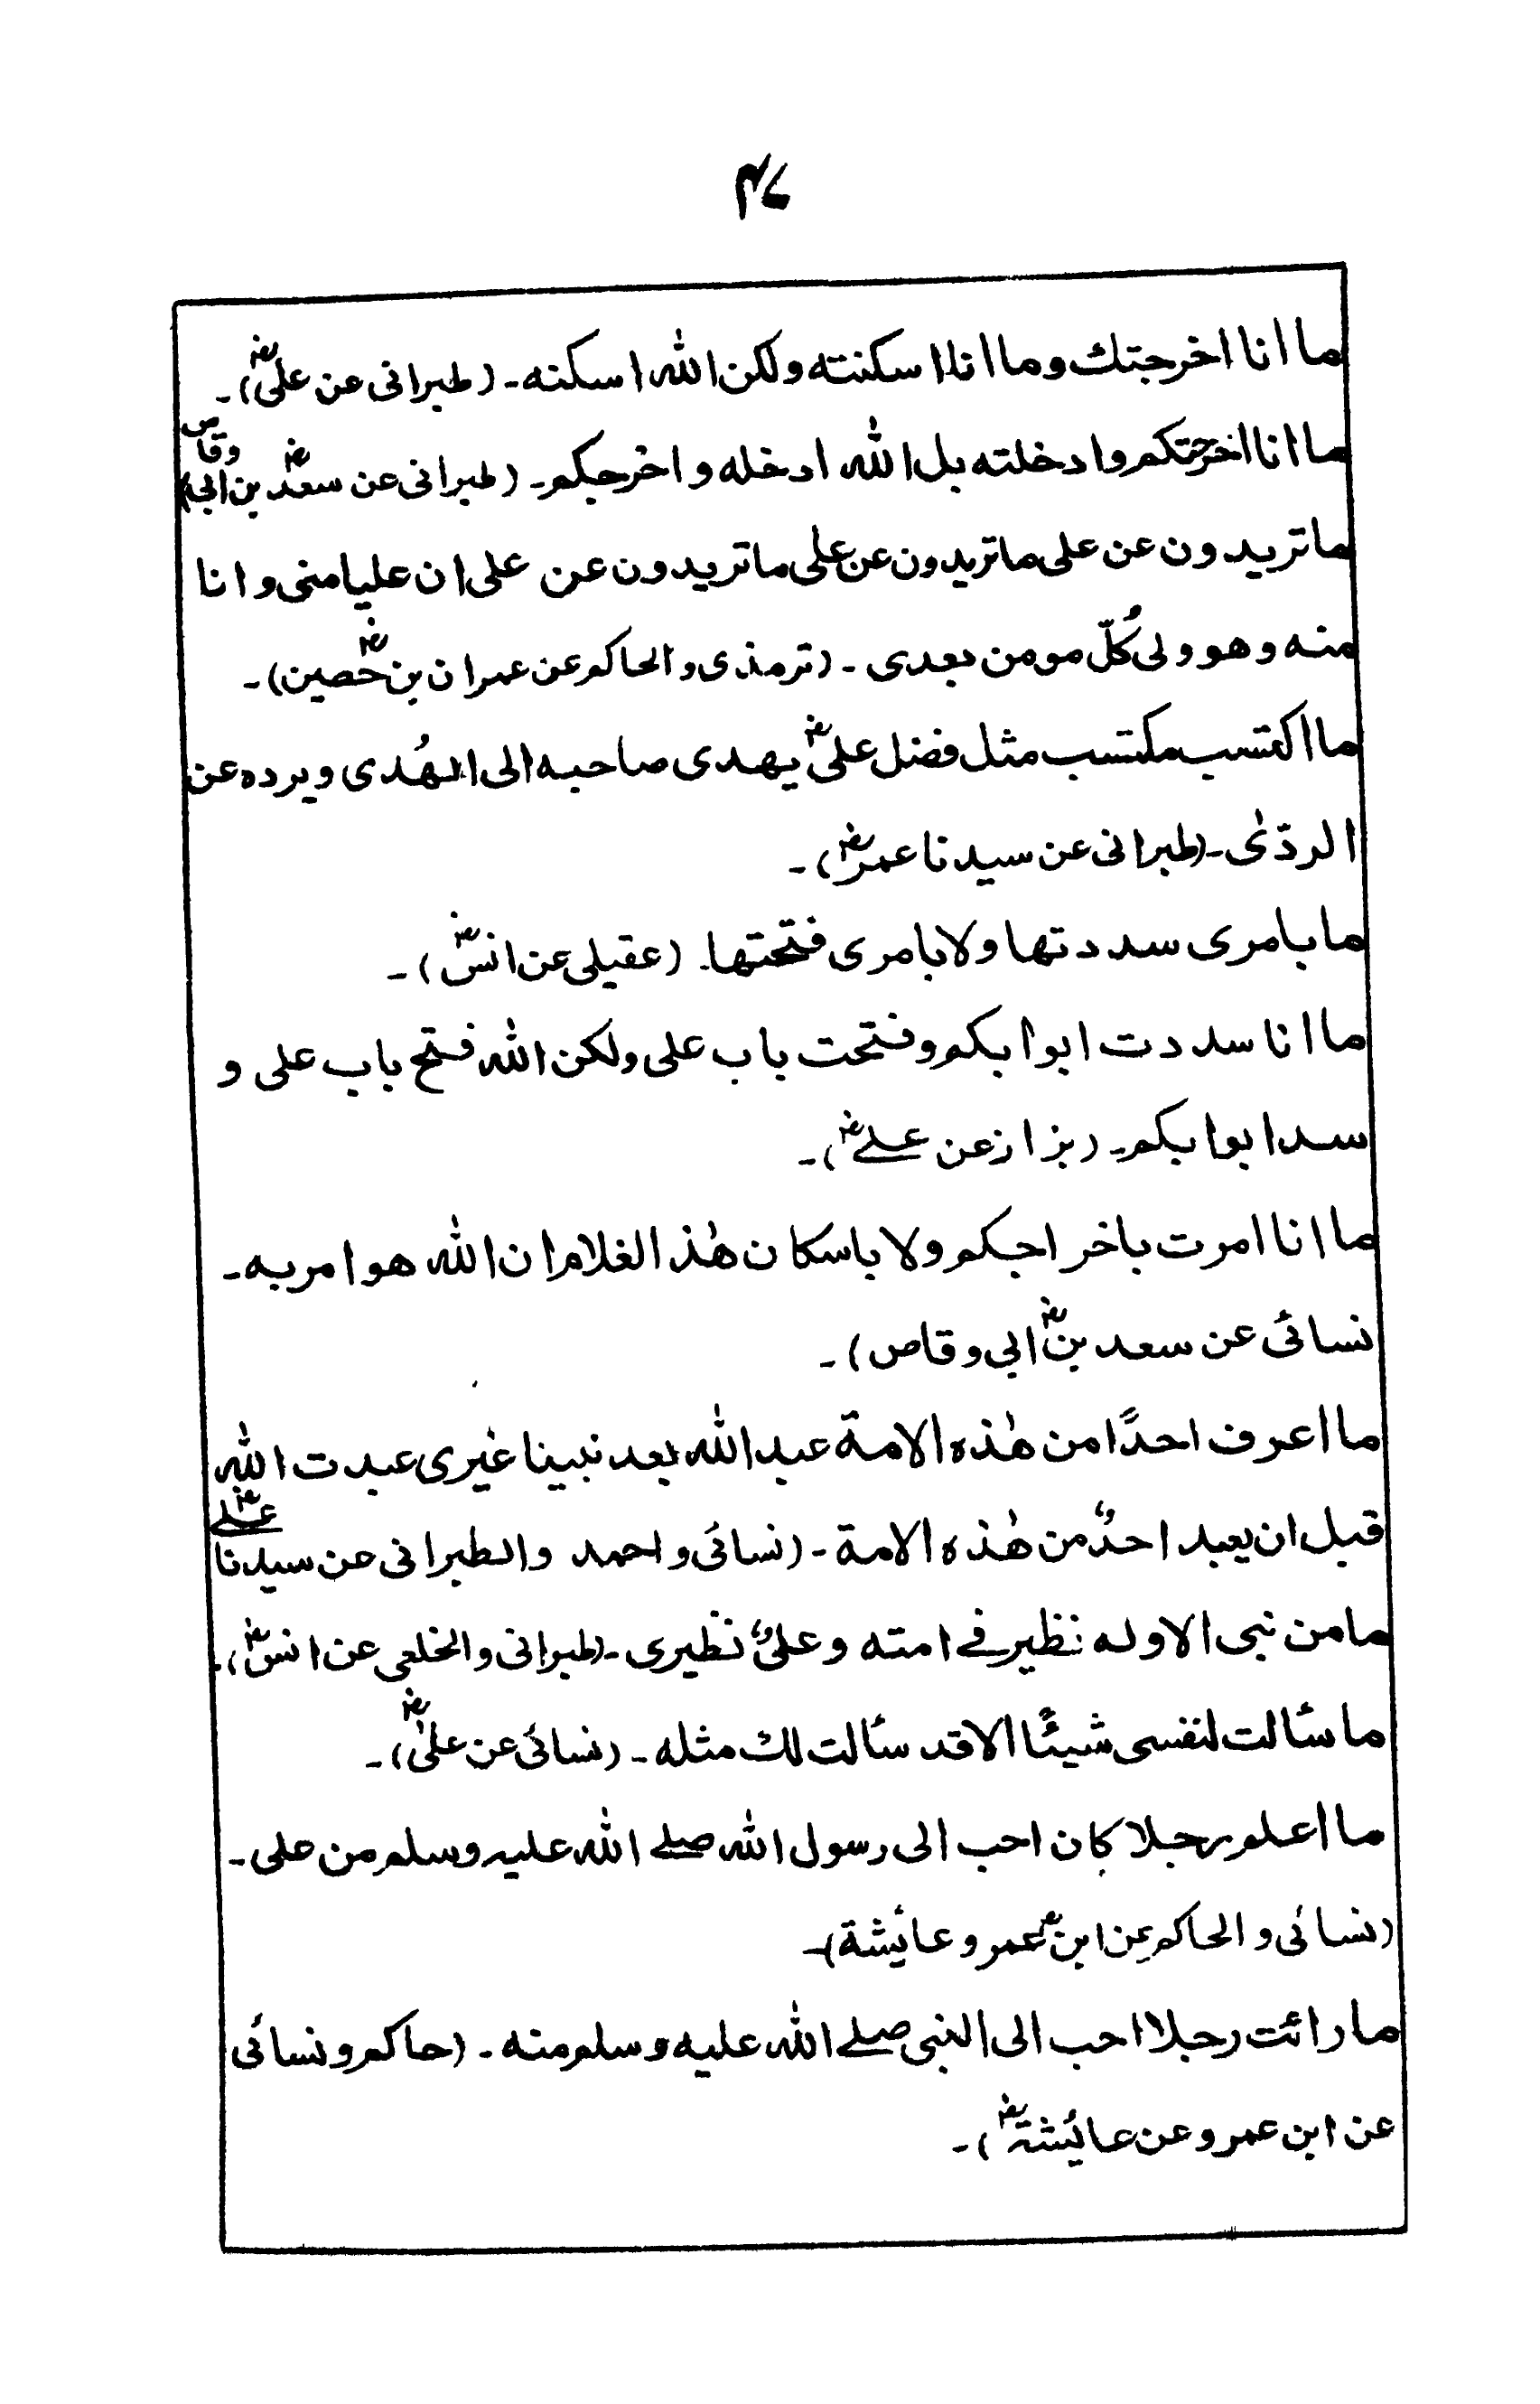 ما انا اخرجتك وما انا اسكنته ولكن الله اسكنه۔ (طبرانی عن علیؓ)۔
ما انا اخرجتكم وادخلته بل الله ادخله واخرجكم۔ (طبرانی عن سعدؓ بن ابی وقاص)
ما تريدون عن علی ما تريدون عن علی ما تريدون عن علی ان عليا منی وانا
منه وهو ولی كُلّ مومن بعدی ۔ (ترمذی والحاكم عن عمران بن حصينؓ)۔
ما اكتسب مكتسب مثل فضل علیؓ يهدی صاحبه الی الهُدی ويرده عن
الردّیٰ۔ (طبرانی عن سيدنا عمرؓ)۔
ما بامری سددتها ولا بامری فتحتها۔ (عقيلی عن انسؓ)۔
ما انا سددت ابوابكم وفتحت باب علی ولكن الله فتح باب علی و
سد ابوابكم۔ (بزاز عن علےؓ)۔
ما انا امرت باخراجكم ولا باسكان هٰذ الغلام ان الله هو امر به۔
نسائی عن سعد بنؓ ابی وقاص)۔
ما اعرف احدًا من هٰذه الامة عبد الله بعد نبينا غيری عبدت الله
قبل ان يعبد احدٌ من هٰذه الامة۔ (نسائی واحمد والطبرانی عن سيدنا علےؓ
ما من نبی الا وله نظير فے امته وعلیٌ نظيری۔ (طبرانی والخلعی عن انسؓ)۔
ما سألت لنفسی شيئًا الا قد سألت لك مثله۔ (نسائی عن علیؓ)۔
ما اعلم رجلا كان احب الی رسول الله صلے الله عليه وسلم من علی۔
(نسائی والحاكم عن ابنؓ عمر و عائشة)۔
ما رائت رجلا احب الی النبی صلے الله عليه وسلم منه۔ (حاكم ونسائی
عن ابن عمر وعن عائشةؓ)۔